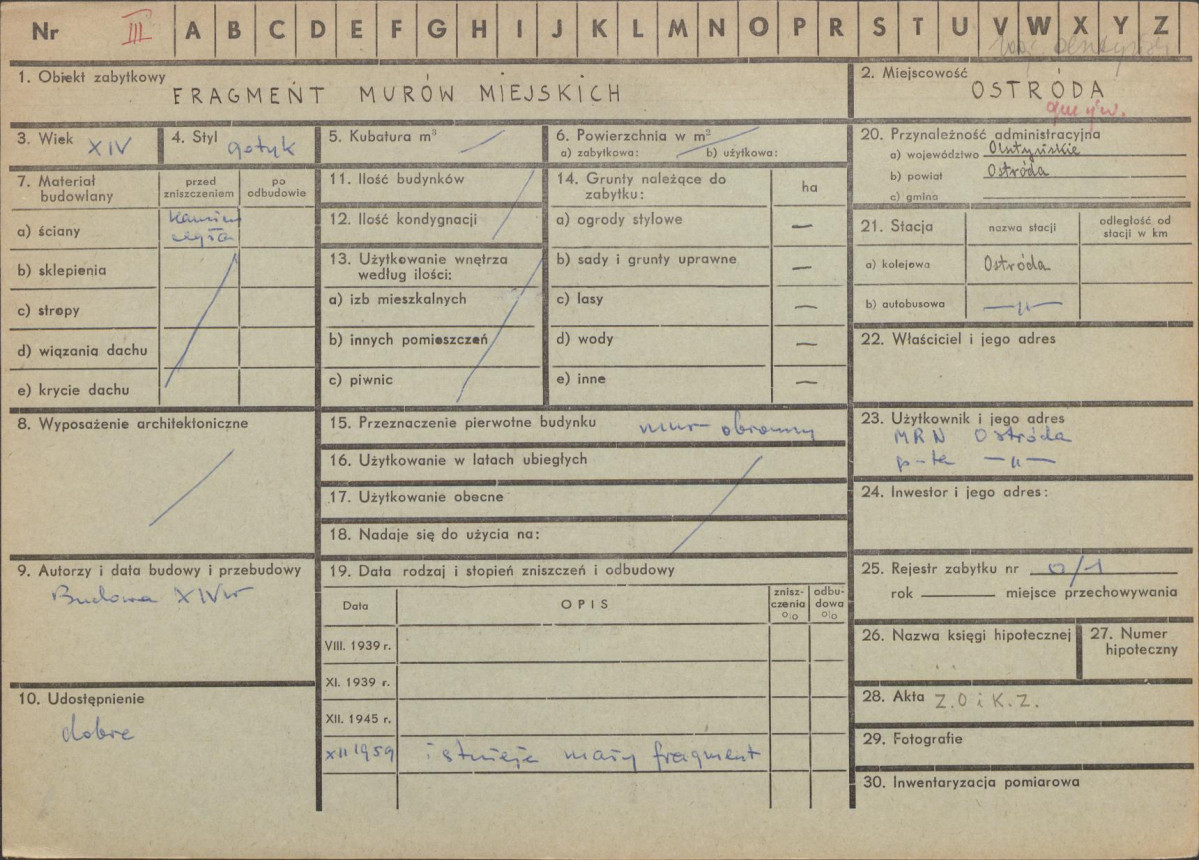 Nr III A B C D E F G H I J K L M N O P R S T U V W X Y Z
1. Obiekt zabytkowy
FRAGMENT MURÓW MIEJSKICH
2. Miejscowość
OSTRÓDA
3. Wiek XIV
4. Styl gotyk
5. Kubatura m³
6. Powierzchnia w m²
a) zabytkowa: b) użytkowa:
7. Materiał budowlany
przed zniszczeniem
po odbudowie
a) ściany
kamień
cegła
b) sklepienia
c) stropy
d) wiązania dachu
e) krycie dachu
8. Wyposażenie architektoniczne
9. Autorzy i data budowy i przebudowy
Budowa XIVw
10. Udostępnienie
dobre
11. Ilość budynków
12. Ilość kondygnacji
13. Użytkowanie wnętrza
według ilości:
a) izb mieszkalnych
b) innych pomieszczeń
c) piwnic
14. Grunty należące do
zabytku:
ha
a) ogrody stylowe —
b) sady i grunty uprawne —
c) lasy —
d) wody —
e) inne —
15. Przeznaczenie pierwotne budynku mur obronny
16. Użytkowanie w latach ubiegłych
17. Użytkowanie obecne
18. Nadaje się do użycia na:
19. Data rodzaj i stopień zniszczeń i odbudowy
Data
OPIS
znisz-
czenia
%
odbu-
dowa
%
VIII. 1939 r.
XI. 1939 r.
XII. 1945 r.
XII 1959 istnieje mały fragment
20. Przynależność administracyjna
a) województwo Olsztyńskie
b) powiat Ostróda
c) gmina
21. Stacja
nazwa stacji
odległość od
stacji w km
a) kolejowa Ostróda
b) autobusowa —"—
22. Właściciel i jego adres
23. Użytkownik i jego adres
MRN Ostróda
p-ta —"—
24. Inwestor i jego adres:
25. Rejestr zabytku nr 0/1
rok miejsce przechowywania
26. Nazwa księgi hipotecznej
27. Numer
hipoteczny
28. Akta Z.O i K.Z.
29. Fotografie
30. Inwentaryzacja pomiarowa